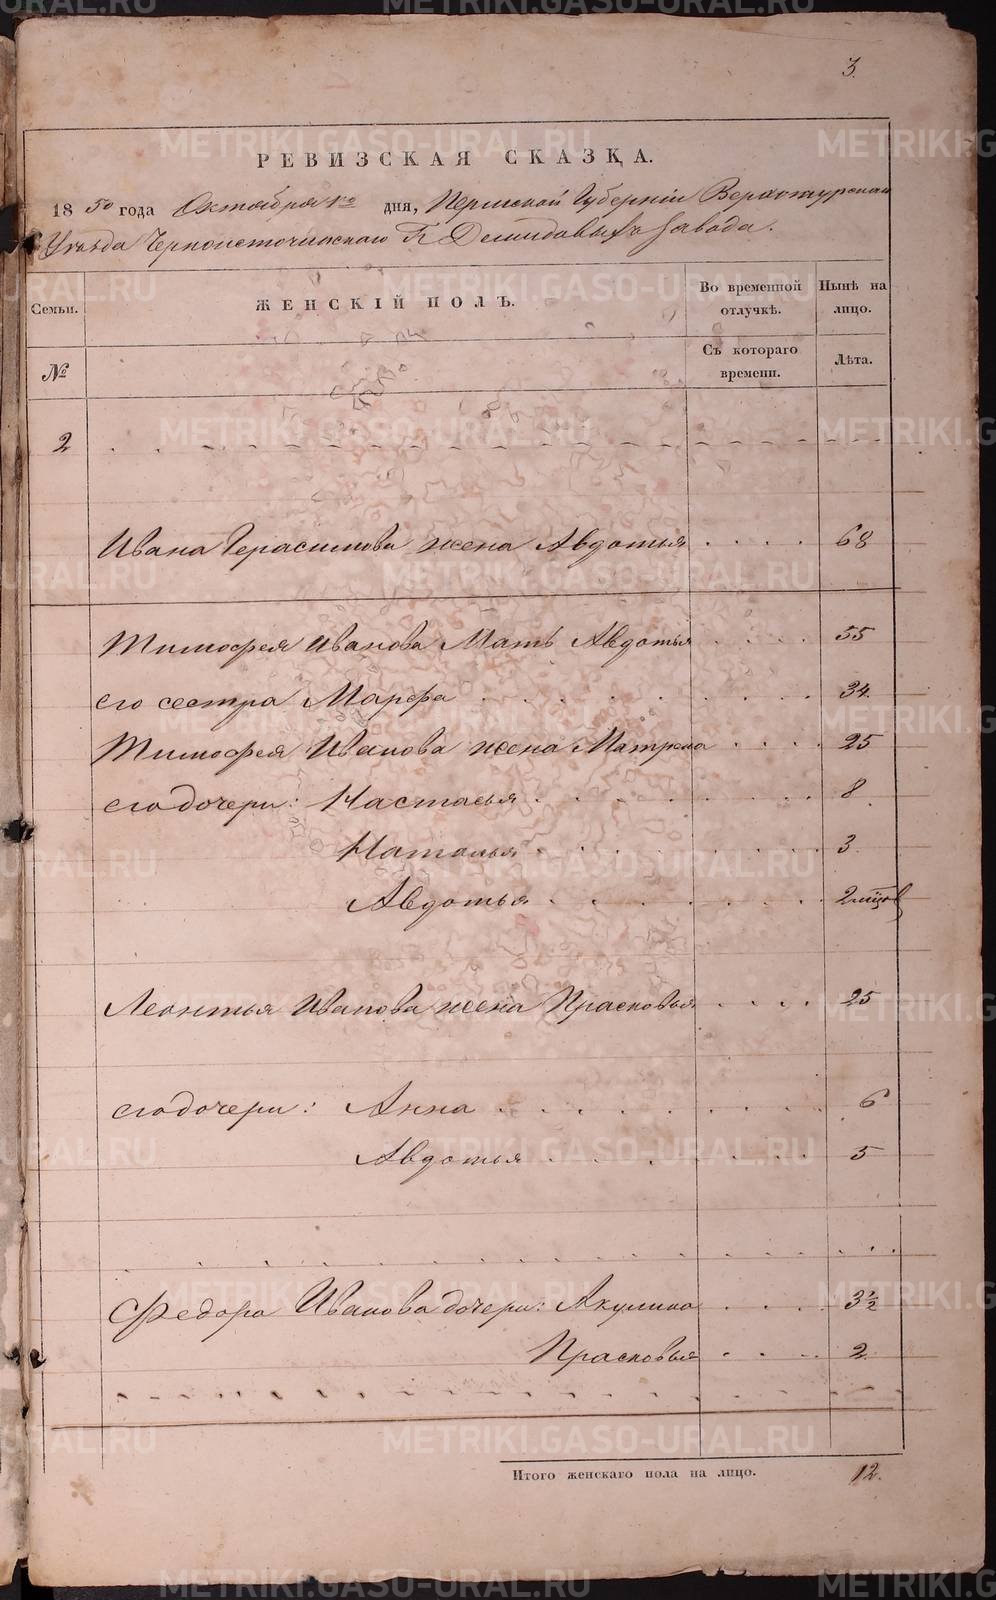 3.
РЕВИЗСКАЯ СКАЗКА.
1850 года Октября 1го дня, Пермской Губерніи Верхотурскаго
Уѣзда Черноисточинскаго Гг Демидовыхъ завода.
Семьи. ЖЕНСКІЙ ПОЛЪ. Во временной отлучкѣ. Нынѣ на лицо.
№ Съ котораго времени. Лѣта.
2
Ивана Герасимова жена Авдотья 68
Тимофея Иванова Мать Авдотья 55
его сестра Марфа 34.
Тимофея Иванова жена Матрена 25
его дочери: Настасья 8
Наталья 3
Авдотья 2 мцов
Леонтья Иванова жена Прасковья 25
его дочери: Анна 6
Авдотья 5
Федора Иванова дочери: Акулина 3½
Прасковья 2
Итого женскаго пола на лицо. 12.
METRIKI.GASO-URAL.RU